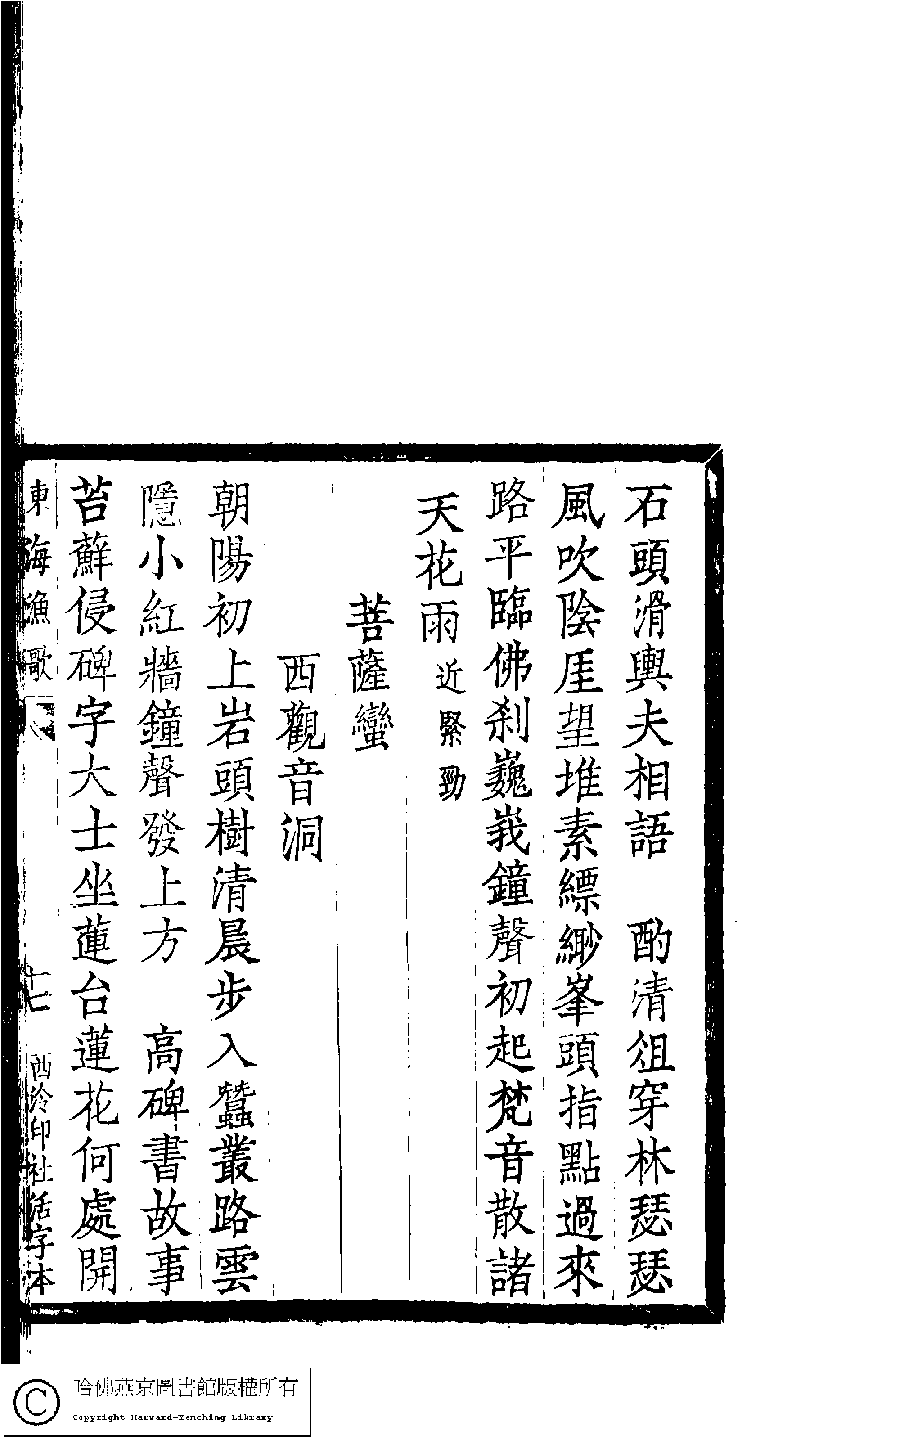 石頭滑輿夫相語　酌清俎穿林瑟瑟
風吹陰厓望堆素縹緲峯頭指點過來
路平臨佛剎巍峩鐘聲初起梵音散諸
天花雨近緊勁
菩薩蠻
西觀音洞
朝陽初上岩頭樹清晨步入蠶叢路雲
隱小紅牆鐘聲發上方　高碑書故事
苔蘚侵碑字大士坐蓮台蓮花何處開
東海漁歌
十七
西泠印社活字本
哈佛燕京圖書館版權所有
Copyright Harvard-Yenching Library